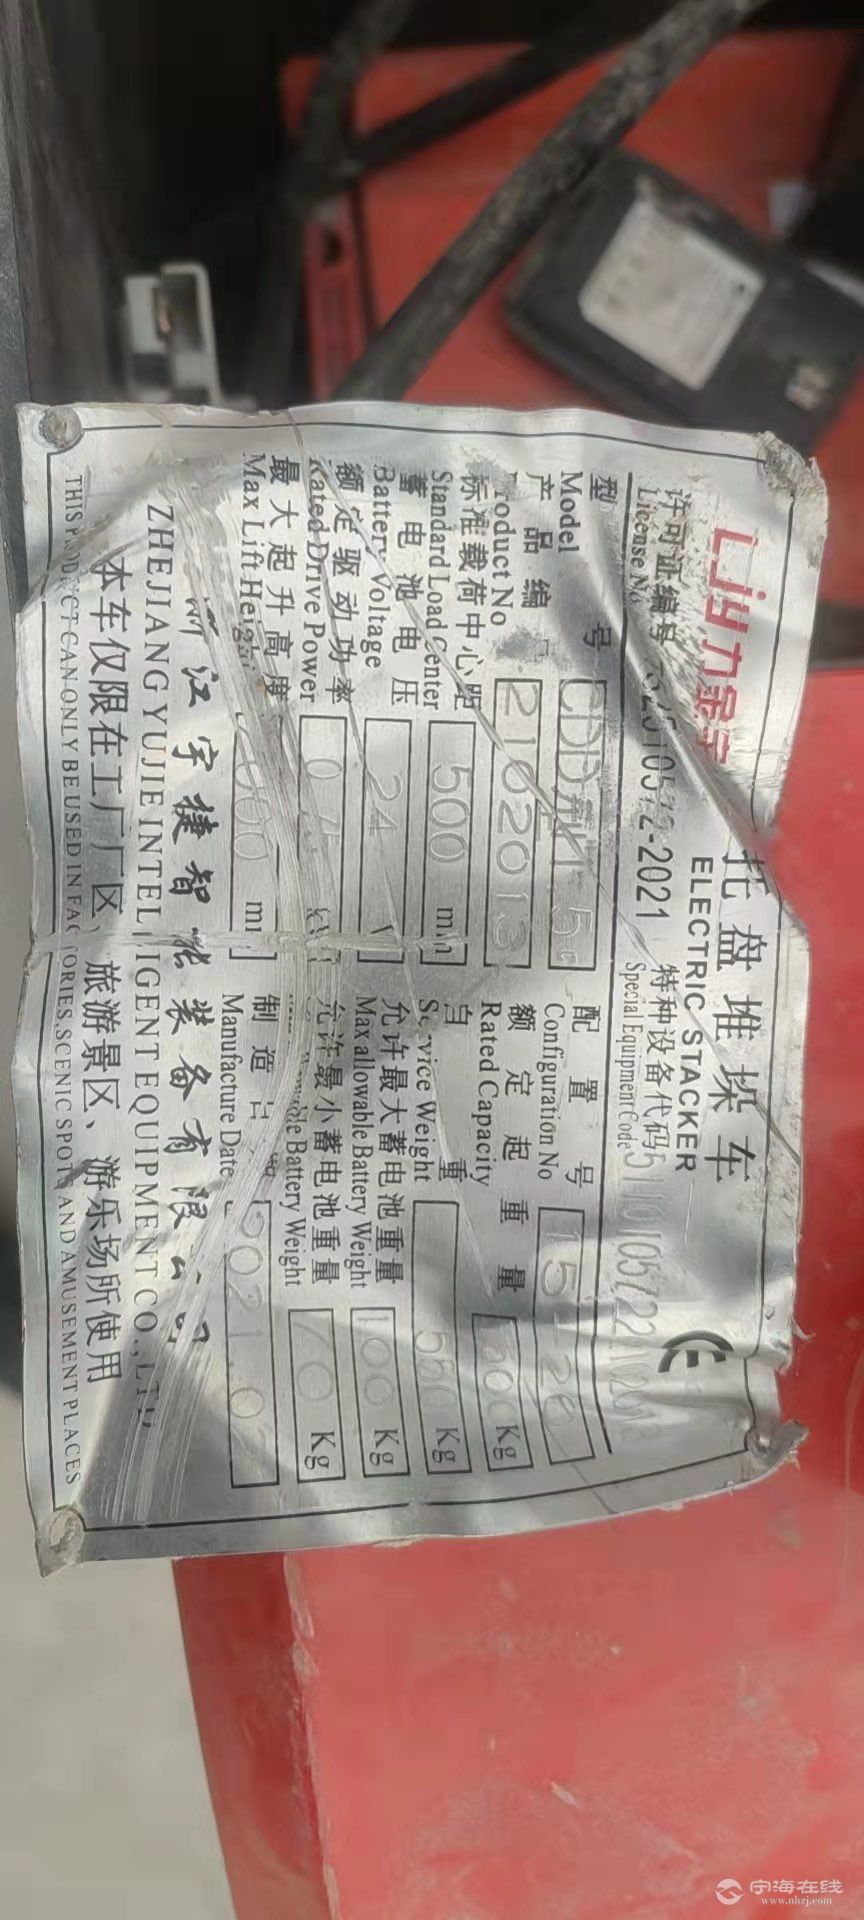 Ljy力
托盘堆垛车
ELECTRIC STACKER
许可证编号
License No
10572-2021
特种设备代码
Special Equipment Code
型 号
Model
配 置 号
Configuration No
15-26
产 品 编
Product No
2102013
额 定 起 重 量
Rated Capacity
Kg
标准载荷中心距
Standard Load Center
500 mm
自 重
Service Weight
550 Kg
蓄 电 池 电 压
Battery Voltage
24 V
允许最大蓄电池重量
Max allowable Battery Weight
100 Kg
额 定 驱 动 功 率
Rated Drive Power
允许最小蓄电池重量
Battery Weight
70 Kg
最 大 起 升 高 度
Max Lift Height
制 造 日
Manufacture Date
2021.0
浙江宇捷智能装备有限公司
ZHEJIANG YUJIE INTELLIGENT EQUIPMENT CO.,LTD
本车仅限在工厂厂区、旅游景区、游乐场所使用
THIS PRODUCT CAN ONLY BE USED IN FACTORIES,SCENIC SPOTS AND AMUSEMENT PLACES
宁海在线
www.nhzj.com